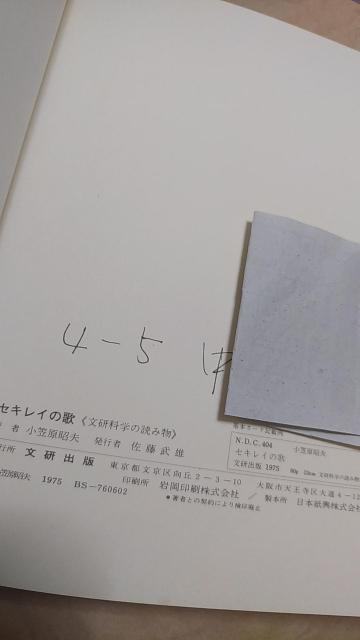 4-5
セキレイの歌《文研科学の読み物》
者 小笠原昭夫 発行者 佐藤武雄
行所 文研出版 東京都文京区向丘2-3-10 大阪市天王寺区大道4-12
印刷所 岩岡印刷株式会社 / 製本所 日本紙興株式会社
笠原昭夫 1975 BS-760602 ●著者との契約により検印廃止
N.D.C.404 小笠原昭夫
セキレイの歌
文研出版 1975 80p 23cm 文研科学の読み物